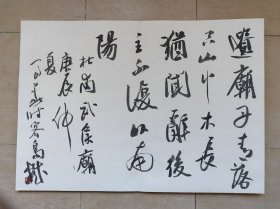 遺廟丹青落
空山艸木長
猶聞辭後
主不復卧南
陽
杜甫武侯廟
庚辰仲
夏
時客